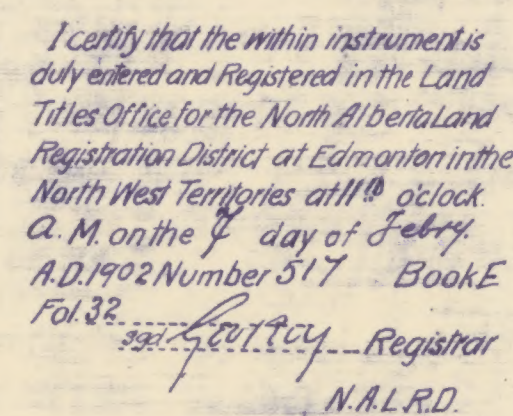 I certify that the within instrument is
duly entered and Registered in the Land
Titles Office for the North Alberta Land
Registration District at Edmonton in the
North West Territories at 11 o'clock.
A. M. on the 7 day of Febry.
A.D. 1902 Number 517 Book E
Fol. 32
sgd. Registrar
N.A.L.R.D.